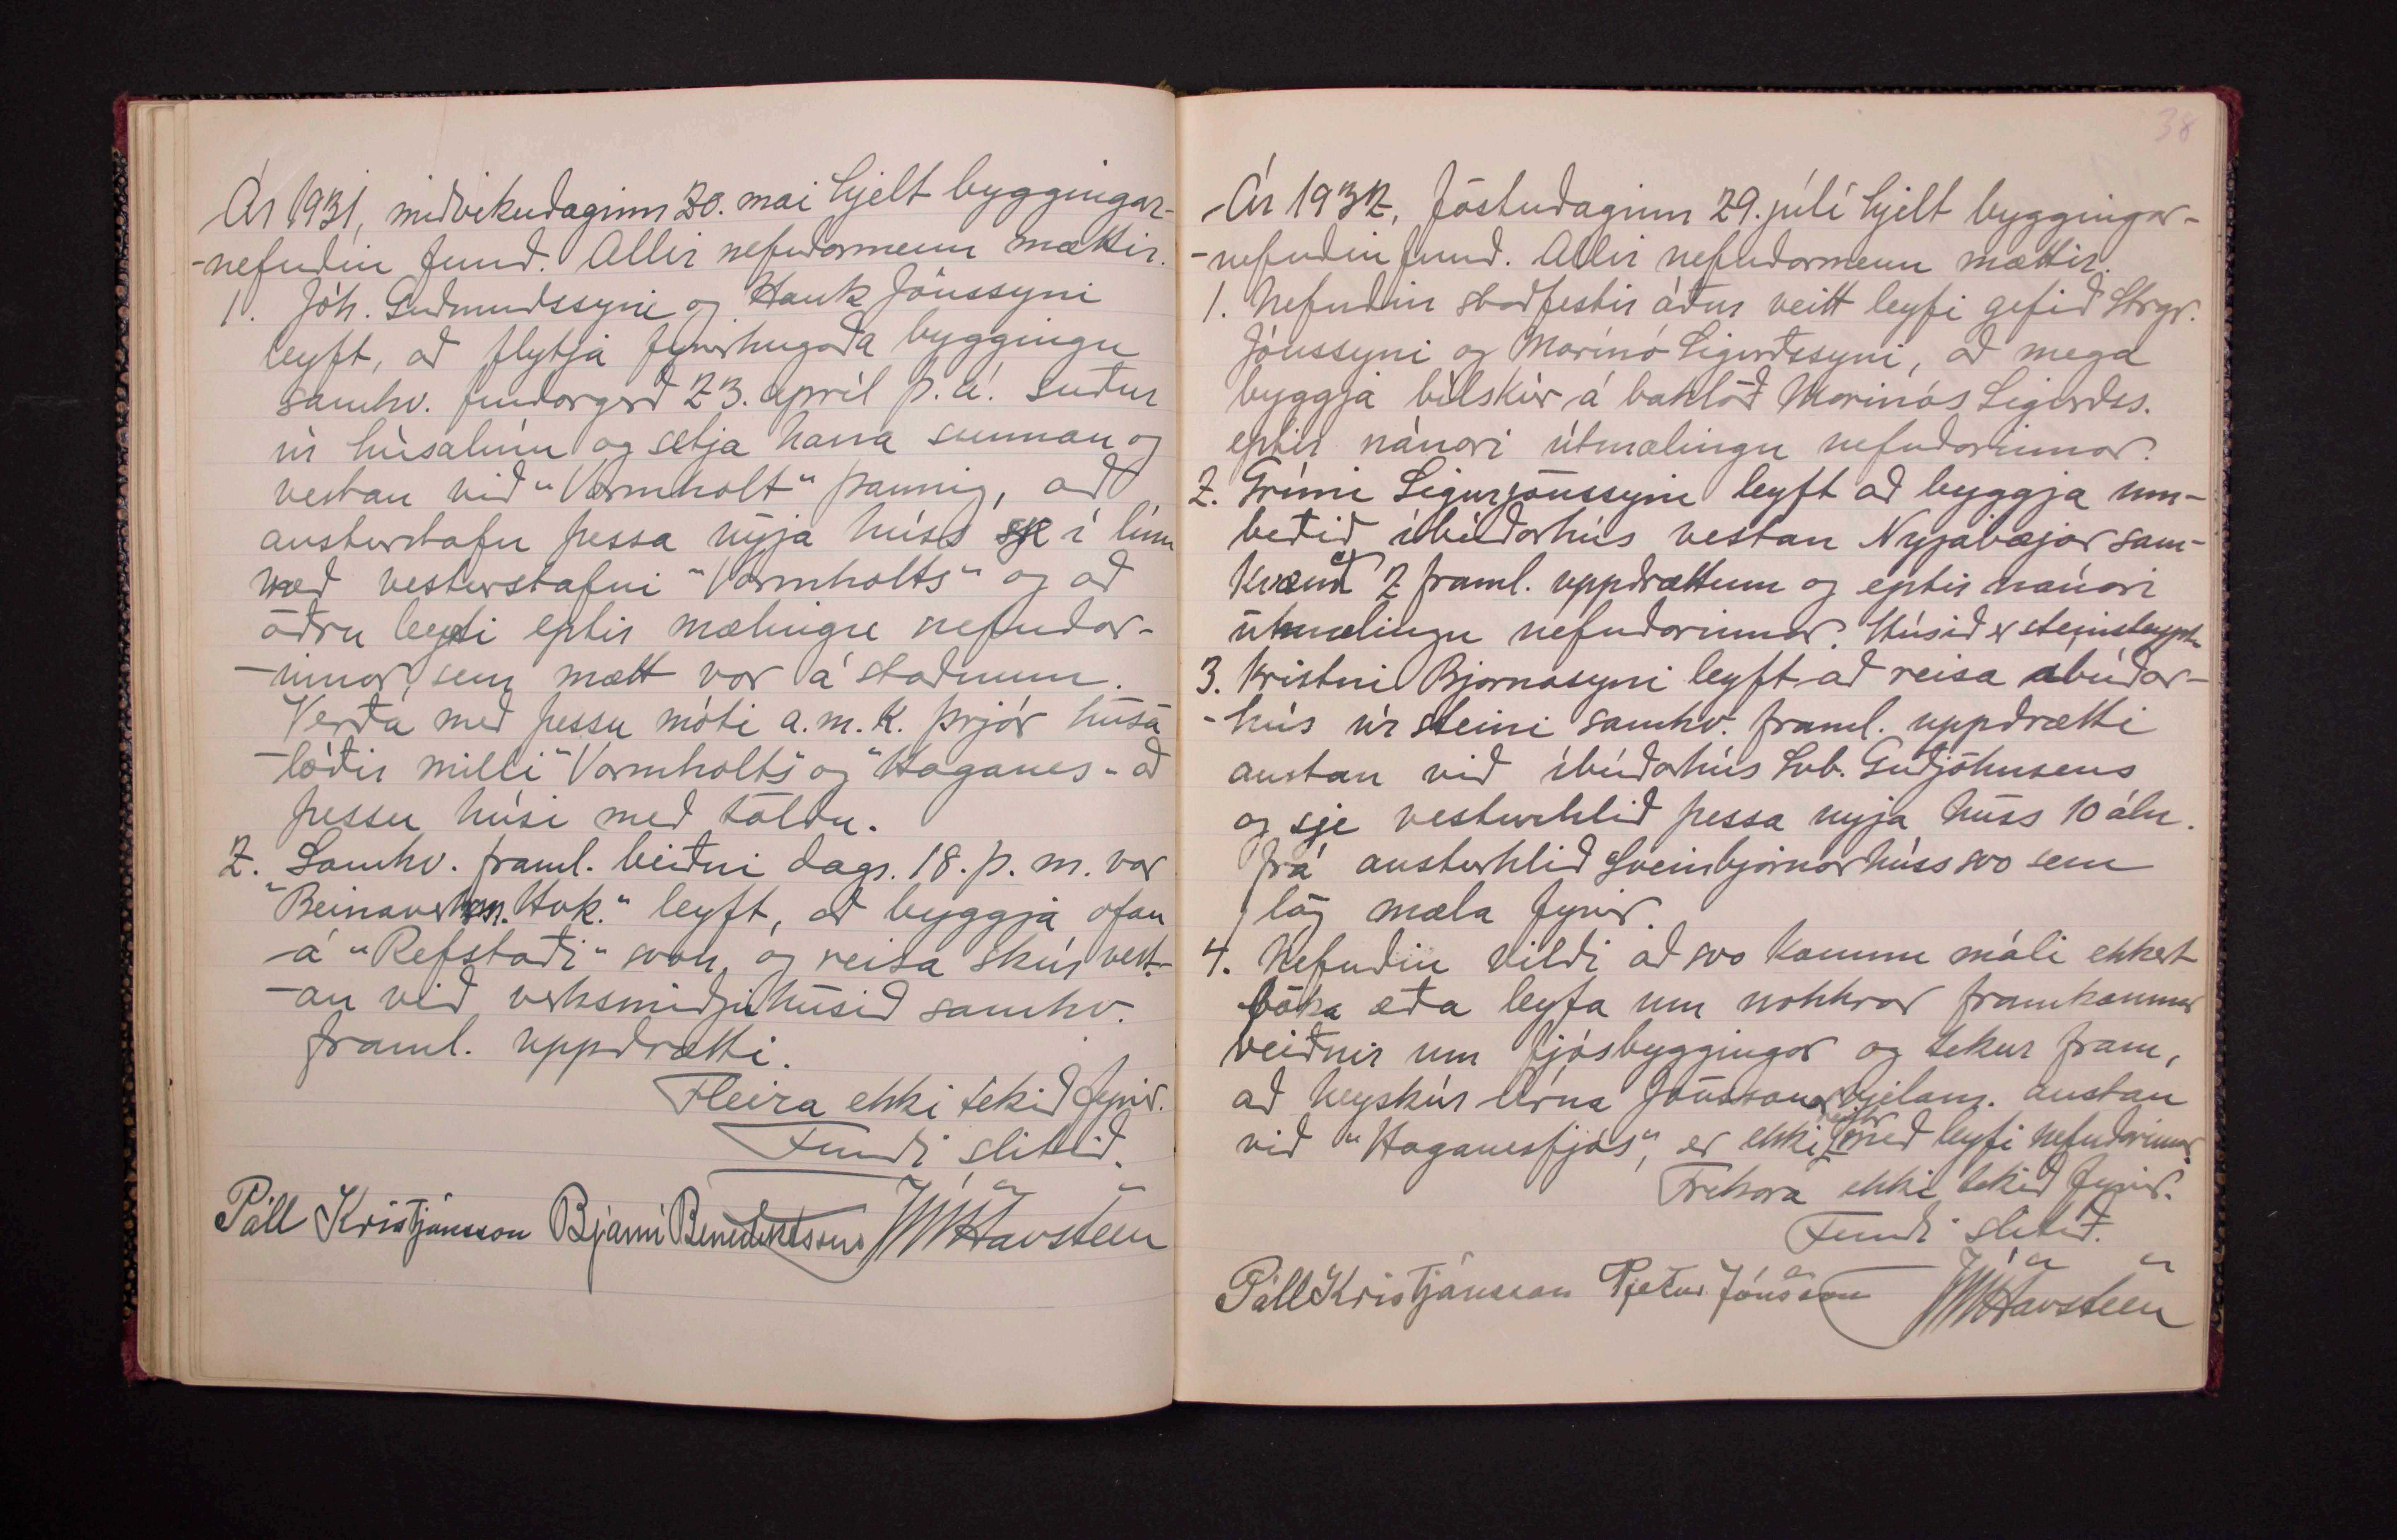 Ár 1931, miðvikudaginn 20. mai hjelt byggingar-
-nefndin fund. Allir nefndarmenn mættir.
1. Jóh. Guðmundssyni og Hauk Jónssyni
leyft, að flytja fyrirhugaða byggingu
samkv. fundargerð 23. apríl þ. á. suður
úr húsalínu og setja hana sunnan og
vestan við "Varmholt" þannig, að
austurstafn þessa nýja húss sje í línu
með vesturstafni "Varmholts" og að
öðru leyti eptir mælingu nefndar-
-innar, sem mætt var á staðnum.
Verða með þessu móti a.m.k. þrjár húsa
-lóðir milli "Varmholts" og "Haganes" að
þessu húsi með töldu.
2. Samkv. framl. beiðni dags. 18. þ. m. var
"Beinaverksm. Húk." leyft, að byggja ofan
á "Refstaði" svon. og reisa skúr vest-
-an við verksmiðjuhúsið samkv.
framl. uppdrætti.
Fleira ekki tekið fyrir.
Fundi slitið.
Páll Kristjánsson Bjarni Benediktsson JVHavsteen
38
Ár 1932, föstudaginn 29. júlí hjelt byggingar-
-nefndin fund. Allir nefndarmenn mættir.
1. Nefndin staðfestir áður veitt leyfi gefið Strgr.
Jónssyni og Marínó Sigurðssyni, að mega
byggja bílskúr á baklóð Marinós Sigurðss.
eptir nánari útmælingu nefndarinnar.
2. Grími Sigurjónssyni leyft að byggja um-
beðið íbúðarhús vestan Nýjabæjar sam-
kvæmt 2 framl. uppdráttum og eptir nánari
útmælingu nefndarinnar. Húsið er steinsteypt.
3. Kristni Bjarnasyni leyft að reisa íbúðar-
-hús úr steini samkv. framl. uppdrætti
austan við íbúðarhús Svb. Guðjohnsens
og sje vesturhlið þessa nýja húss 10 áln.
frá austurhlið Sveinbjarnarhúss svo sem
lög mæla fyrir.
4. Nefndin vildi að svo komnu máli ekkert
bóka eða leyfa um nokkrar framkomnar
beiðnir um fjósbyggingar og tekur fram,
að heyskúr Árna Jónssonar vjelam. austan
við "Haganesfjós", er ekki reistur með leyfi nefndarinnar.
Frekara ekki tekið fyrir.
Fundi slitið.
Páll Kristjánsson Pjetur Jónsson JVHavsteen